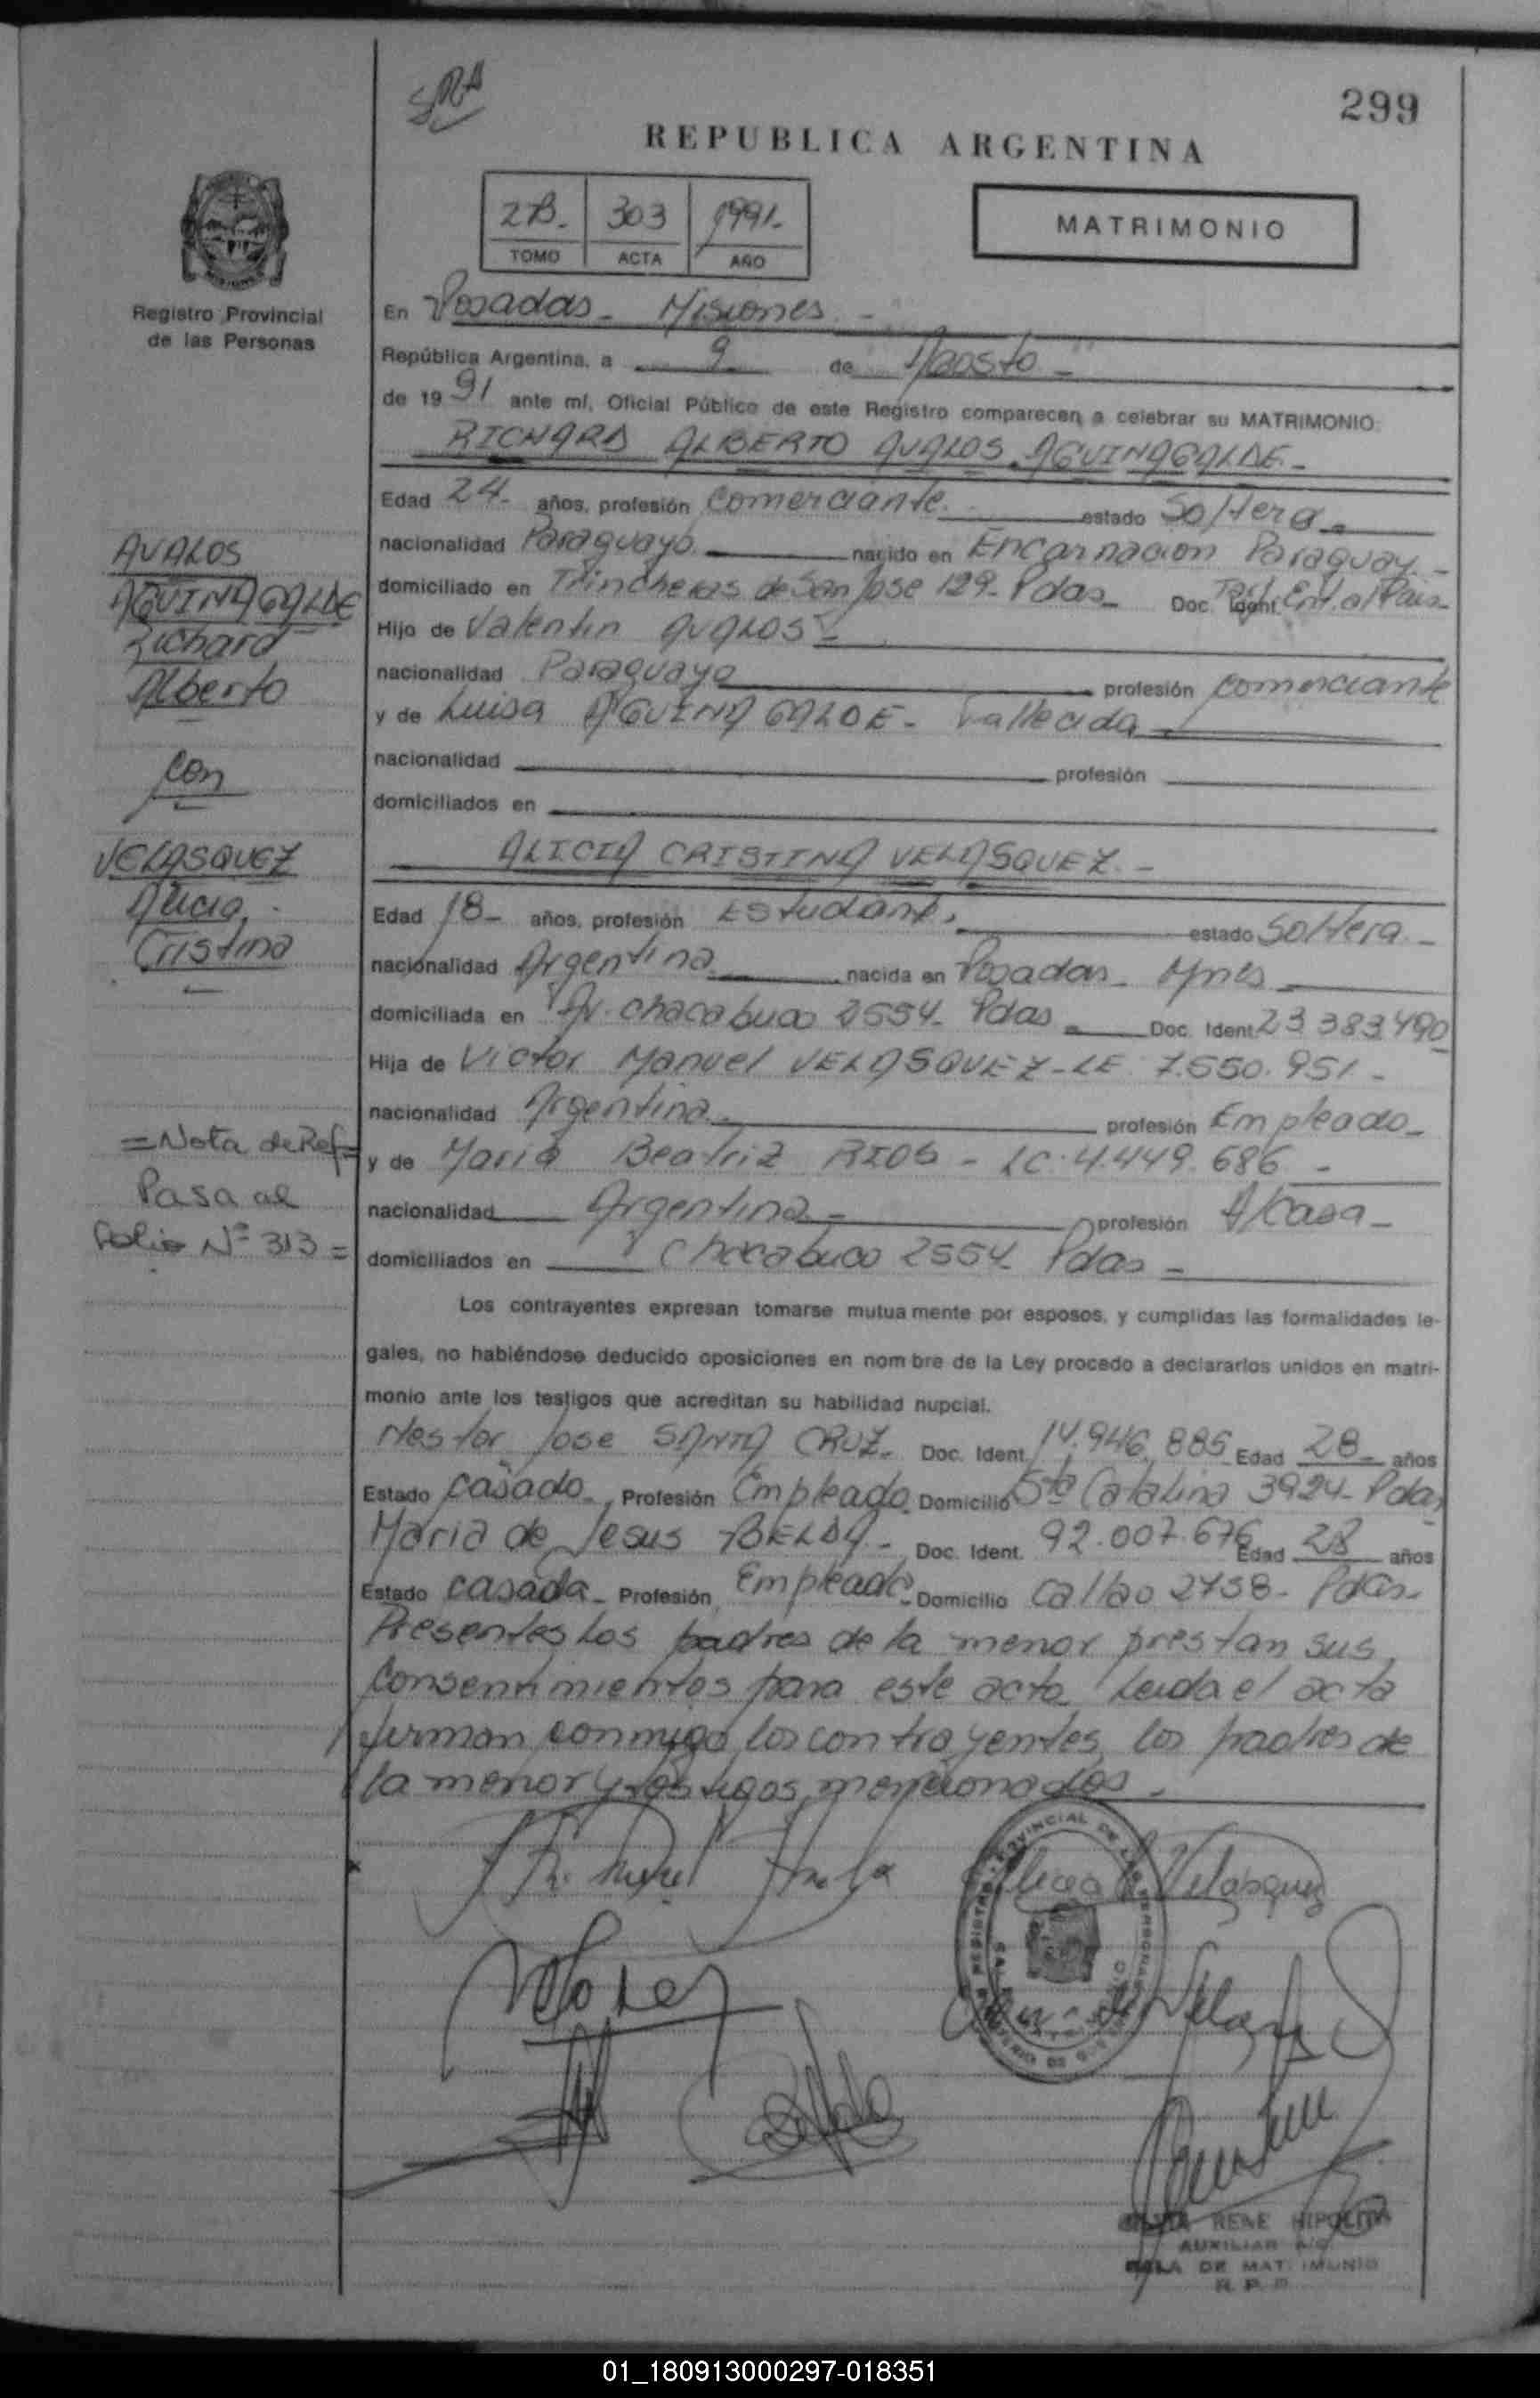 299
REPUBLICA ARGENTINA
2B- 303 1991-
TOMO ACTA AÑO
MATRIMONIO
Registro Provincial
de las Personas
En Posadas - Misiones -
República Argentina, a 9 de Agosto -
de 1991 ante mí, Oficial Público de este Registro comparecen a celebrar su MATRIMONIO:
RICHARD ALBERTO AVALOS AGUINAGALDE -
Edad 24- años, profesión Comerciante. estado Soltero -
nacionalidad Paraguayo nacido en Encarnacion Paraguay -
domiciliado en Trincheras de San Jose 129- Pdas - Doc. Ident. Tarj. Ent. al Pais -
Hijo de Valentin AVALOS -
nacionalidad Paraguayo profesión comerciante
y de Luisa AGUINAGALDE - Fallecida
nacionalidad profesión
domiciliados en
ALICIA CRISTINA VELASQUEZ. -
Edad 18- años, profesión Estudiante. estado Soltera. -
nacionalidad Argentina nacida en Posadas - Mnes
domiciliada en Av. Chacabuco 2554- Pdas - Doc. Ident. 23 383 490
Hija de Victor Manuel VELASQUEZ - LE 7.550.951 -
nacionalidad Argentina. profesión Empleado -
y de Maria Beatriz RIOS - LC. 4.449.686 -
nacionalidad Argentina - profesión A/Casa -
domiciliados en Chacabuco 2554 Pdas -
Los contrayentes expresan tomarse mutuamente por esposos, y cumplidas las formalidades le-
gales, no habiéndose deducido oposiciones en nombre de la Ley procedo a declararlos unidos en matri-
monio ante los testigos que acreditan su habilidad nupcial.
Nestor Jose SANTA CRUZ - Doc. Ident. 14.946.885 Edad 28 - años
Estado casado -, Profesión Empleado. Domicilio Sta Catalina 3924- Pdas
Maria de Jesus BELDA - Doc. Ident. 92.007.676 Edad 28 años
Estado casada - Profesión Empleada - Domicilio Callao 2758- Pdas -
Presentes los padres de la menor prestan sus
consentimientos para este acto. Leida el acta
firman conmigo los contrayentes, los padres de
la menor y testigos mencionados -
AVALOS
AGUINAGALDE
Richard
Alberto
con
VELASQUEZ
Alicia
Cristina
= Nota de Ref =
Pasa al
folio Nº 313 =
Alicia C Velasquez
RENE HIPOLITA
AUXILIAR A/C
SALA DE MATRIMONIO
R. P. P.
01_180913000297-018351